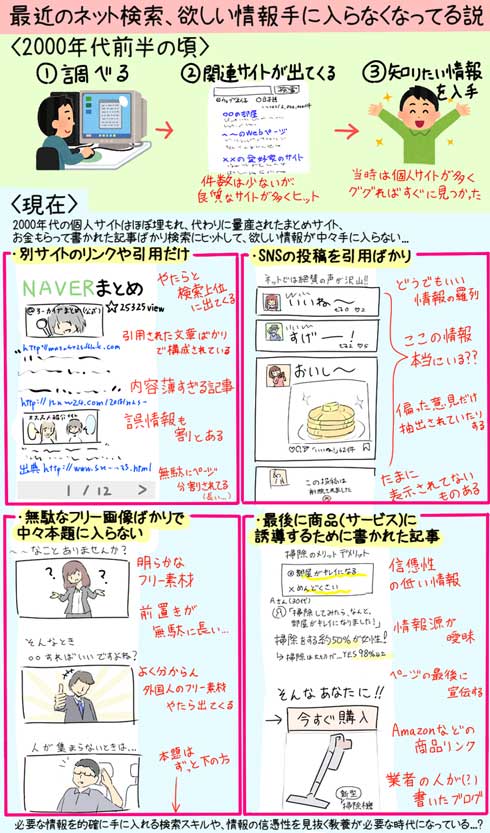 最近のネット検索、欲しい情報手に入らなくなってる説
〈2000年代前半の頃〉
①調べる
②関連サイトが出てくる
検索
○○の部屋
～～のWebページ
××の愛好家のサイト
件数は少ないが
良質なサイトが多くヒット
③知りたい情報
を入手
当時は個人サイトが多く
ググればすぐに見つかった
〈現在〉
2000年代の個人サイトはほぼ埋もれ、代わりに量産されたまとめサイト、
お金もらって書かれた記事ばかり検索にヒットして、欲しい情報が中々手に入らない…
・別サイトのリンクや引用だけ
NAVERまとめ
☆25325view
出典
1/12 >
やたらと
検索上位
に出てくる
引用された文章ばかり
で構成されている
内容薄すぎる記事
誤情報も
割とある
無駄にページ
分割されてる
(長い…)
・SNSの投稿を引用ばかり
ネットでは絶賛の声が沢山!!
いいね～
すげー!
おいし～
この投稿は
削除されました
どうでもいい
情報の羅列
ここの情報
本当にいる??
偏った意見だけ
抽出されていたり
する
たまに
表示されてない
ものある
・無駄なフリー画像ばかりで
中々本題に入らない
～～なことありませんか?
? ?
そんなとき
○○すればいいですよね?
人が集まらないときは…
明らかな
フリー素材
前置きが
無駄に長い…
よく分からん
外国人のフリー素材
やたら出てくる
本題は
ずっと下の方
・最後に商品(サービス)に
誘導するために書かれた記事
掃除のメリットデメリット
◎部屋がキレイになる
×めんどくさい
Aさん(30代)
「掃除してみたら、なんと、
部屋がキレイになりました!」
掃除をする約50%が女性!
YES98%
そんなあなたに!!
→ 今すぐ購入
新型
掃除機
信憑性
の低い情報
情報源が
曖昧
ページの最後に
宣伝する
Amazonなどの
商品リンク
業者の人が(?)
書いたブログ
必要な情報を的確に手に入れる検索スキルや、情報の信憑性を見抜く教養が必要な時代になっている…?